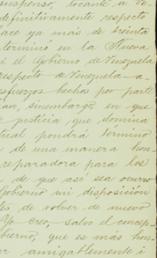 suspenso, tocante a Ve-
definitivamente respecto
ace ya más de treinta
terminó en la Nueva
i el Gobierno de Venezuela
respecto a Venezuela a-
sfuerzos hechos por parte
an, sinembargo, en que
e justicia que domina
tual pondrá término
de una manera hon-
reparadora para los
de que así sea ocurro
Gobierno mi disposición
tes de volver de nuevo
creo, salvo el concep-
bierno, que es más hon-
amigablemente i